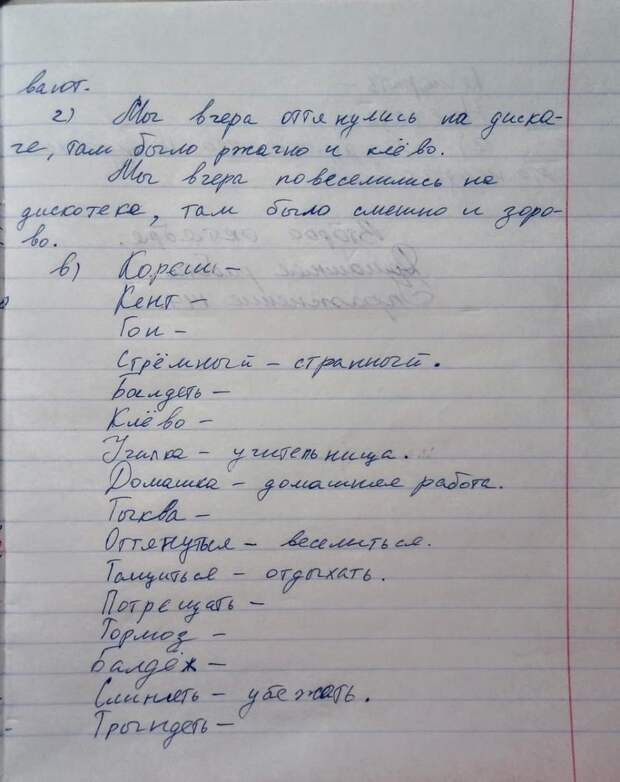 вают.
г) Мы вчера оттянулись на диска-
че, там было ржачно и клёво.
Мы вчера повеселились на
дискотеке, там было смешно и здоро-
во.
в) Кореш –
Кент –
Гон –
Стрёмный – странный.
Балдеть –
Клёво –
Училка – учительница.
Домашка – домашняя работа.
Тыква –
Оттянуться – веселиться.
Тащиться – отдыхать.
Потрещать –
Тормоз –
Балдёж –
Слинять – убежать.
Трындеть –